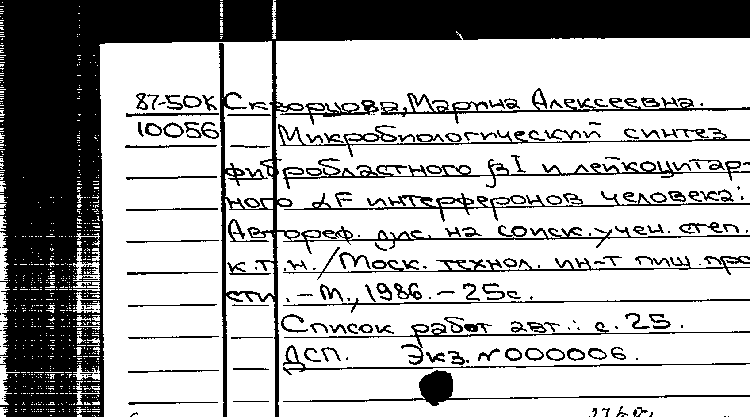 87-50К Скворцова, Марина Алексеевна.
10056 Микробиологический синтез
фибробластного βI и лейкоцитар-
ного αF интерферонов человека:
Автореф. дис. на соиск. учен. степ.
к.т.н. / Моск. технол. ин-т пищ. про
сти. – М., 1986. – 25с.
Список работ авт.: с. 25.
ДСП. Экз. N000006.